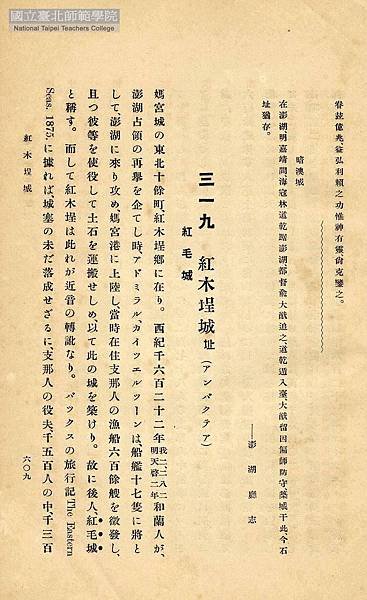 國立臺北師範學院
National Taipei Teachers College
眷玆億兆、益弘利賴之功、惟神有靈、尙克鑒之。
暗澳城
在澎湖、明嘉靖間海寇林道乾踞澎湖、都督兪大猷追之、道乾遁入臺、大猷留因偏師防守、築城于此、今石
址猶存。
——澎湖廳志
三一九 紅木埕城址(アンバクテア)
紅毛城
媽宮城の東北十餘町、紅木埕鄕に在り。西紀千六百二十二年我二、二八二明天啓二年和蘭人が、
澎湖占領の再擧を企てし時、アドミラル、カイツエルツーンは、船艦十七隻に將と
して澎湖に來り攻め、媽宮港に上陸し、當時在住支那人の漁船六百餘艘を徵發し、
且つ彼等を使役して土石を運搬せしめ、以て此の城を築けり。故に後人、紅毛城
と稱す。而して紅木埕は此れが近音の轉訛なり。バックスの旅行記The Eastern
Seas, 1875.に據れば、城塞の未だ落成せざるに、支那人の役夫千五百人の中、千三百
紅木埕城
六〇九